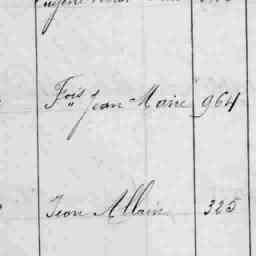 Fois Jean-Marie 964
Jean Allain 325